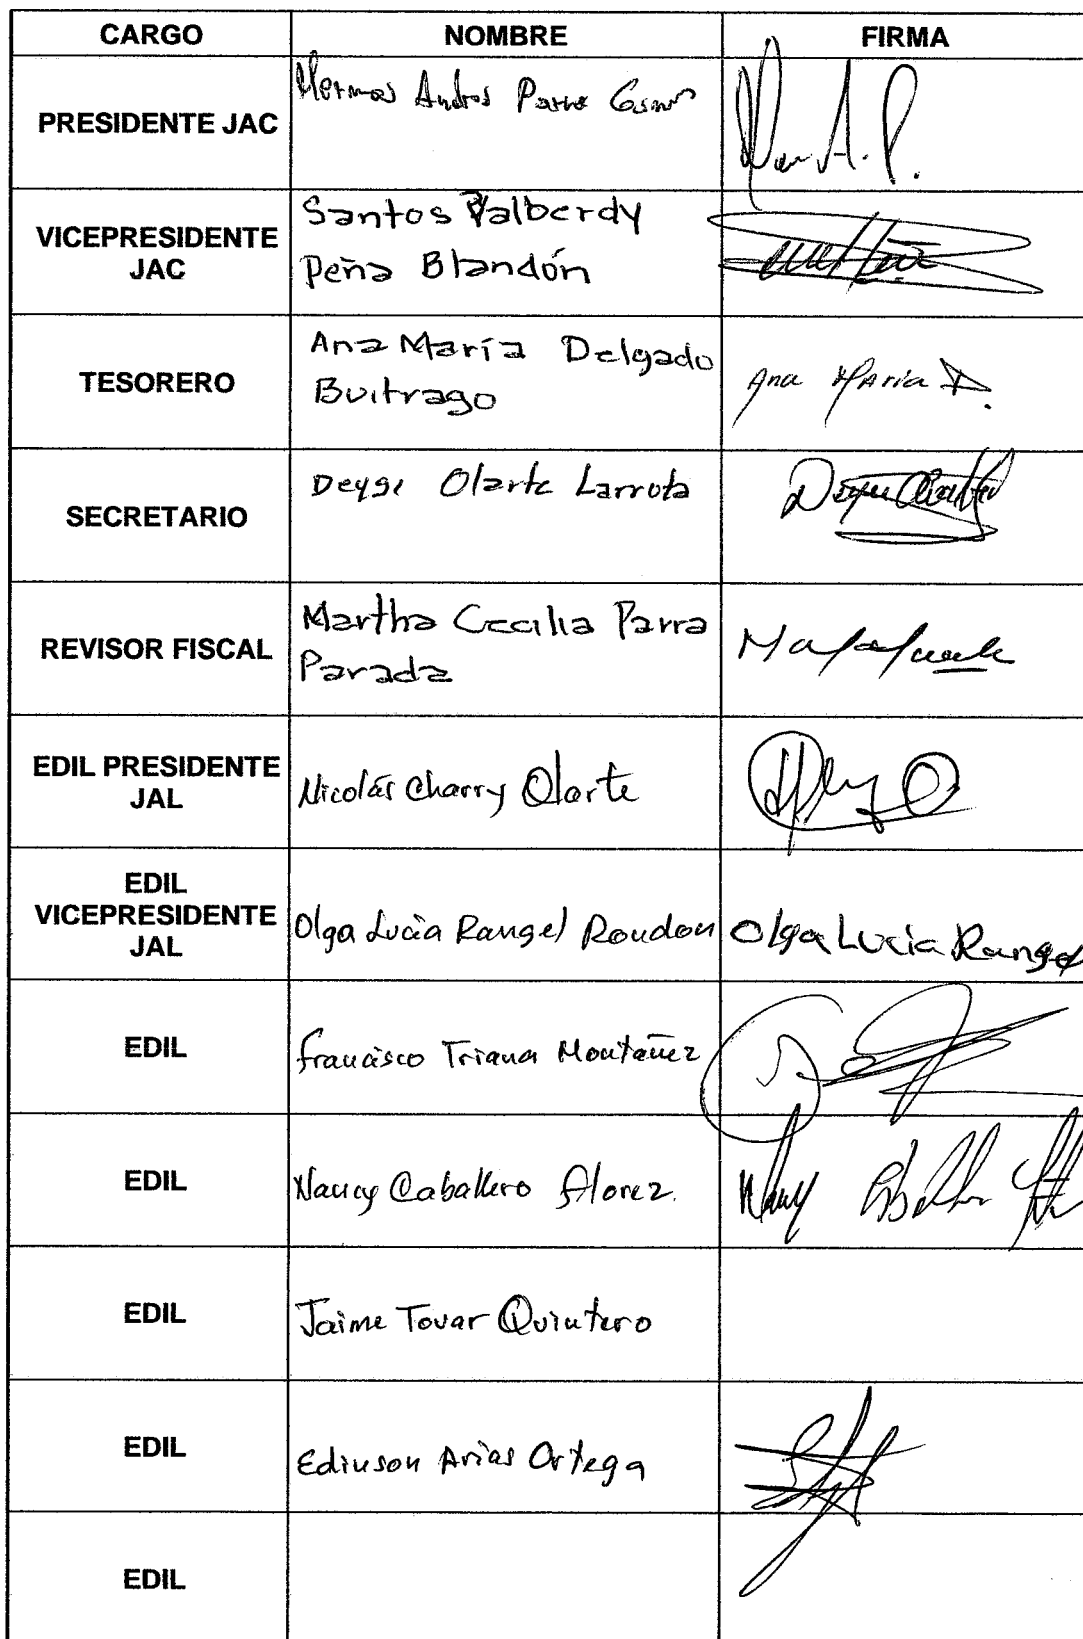 CARGO NOMBRE FIRMA
PRESIDENTE JAC Andres Parra
VICEPRESIDENTE Santos Valberdy
JAC Peña Blandón
TESORERO Ana María Delgado Ana Maria D.
Buitrago
SECRETARIO Deysi Olarte Larrota
REVISOR FISCAL Martha Cecilia Parra
Parada
EDIL PRESIDENTE
JAL Nicolás Charry Olarte
EDIL
VICEPRESIDENTE Olga Lucía Rangel Rondon Olga Lucia Rangel
JAL
EDIL francisco Triana Montañez
EDIL Nancy Caballero florez.
EDIL Jaime Tovar Quintero
EDIL Edinson Arias Ortega
EDIL